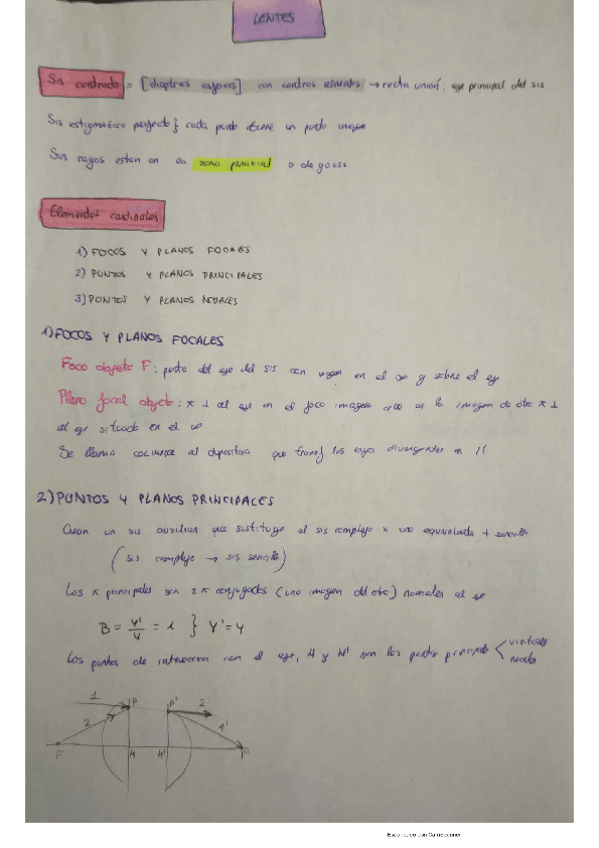 LENTES
Sis centrado = [dioptrios esféricos] con centros alineados → recta unión: eje principal del sis
Sis estigmático perfecto} cada punto tiene un punto imagen
Sus rayos están en la zona paraxial o de gauss
Elementos cardinales
1) FOCOS Y PLANOS FOCALES
2) PUNTOS Y PLANOS PRINCIPALES
3) PUNTOS Y PLANOS NODALES
1) FOCOS Y PLANOS FOCALES
Foco objeto F: punto del eje del sis con imagen en el ∞ y sobre el eje
Plano focal objeto: π ⊥ al eje en el foco imagen es la imagen de otro π ⊥
al eje situado en el ∞
Se llama al dispositivo que transf los rayos divergentes en //
2) PUNTOS Y PLANOS PRINCIPALES
Crean un sis auxiliar que sustituye al sis complejo x uno equivalente + sencillo
(sis complejo → sis sencillo)
Los π principales son 2 π conjugados (uno imagen del otro) normales al eje
B = y'/y = 1 } Y' = Y
Los puntos de intersección con el eje, H y H' son los puntos principales < virtuales
reales
1 P P' 2
2 1'
F H H' F'
Escaneado con CamScanner